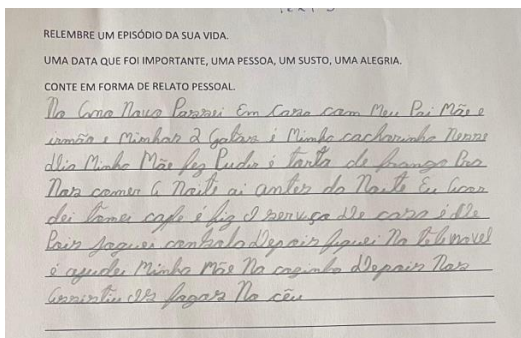 RELEMBRE UM EPISÓDIO DA SUA VIDA.
UMA DATA QUE FOI IMPORTANTE, UMA PESSOA, UM SUSTO, UMA ALEGRIA.
CONTE EM FORMA DE RELATO PESSOAL.
No Ano Novo Passei Em Casa com Meu Pai Mãe e
irmão e Minhas 2 Gatas é Minha cachorrinha Nesse
dia Minha Mãe fez Pudin é torta de frango Pra
Nos comer a Noite ai antes da Noite Eu acor
dei tomei café é fiz o serviço de casa é de
Pois joguei controle depois fiquei No telemovel
é ajudei Minha Mãe Na cozinha depois Nos
assistiu os fogos No céu